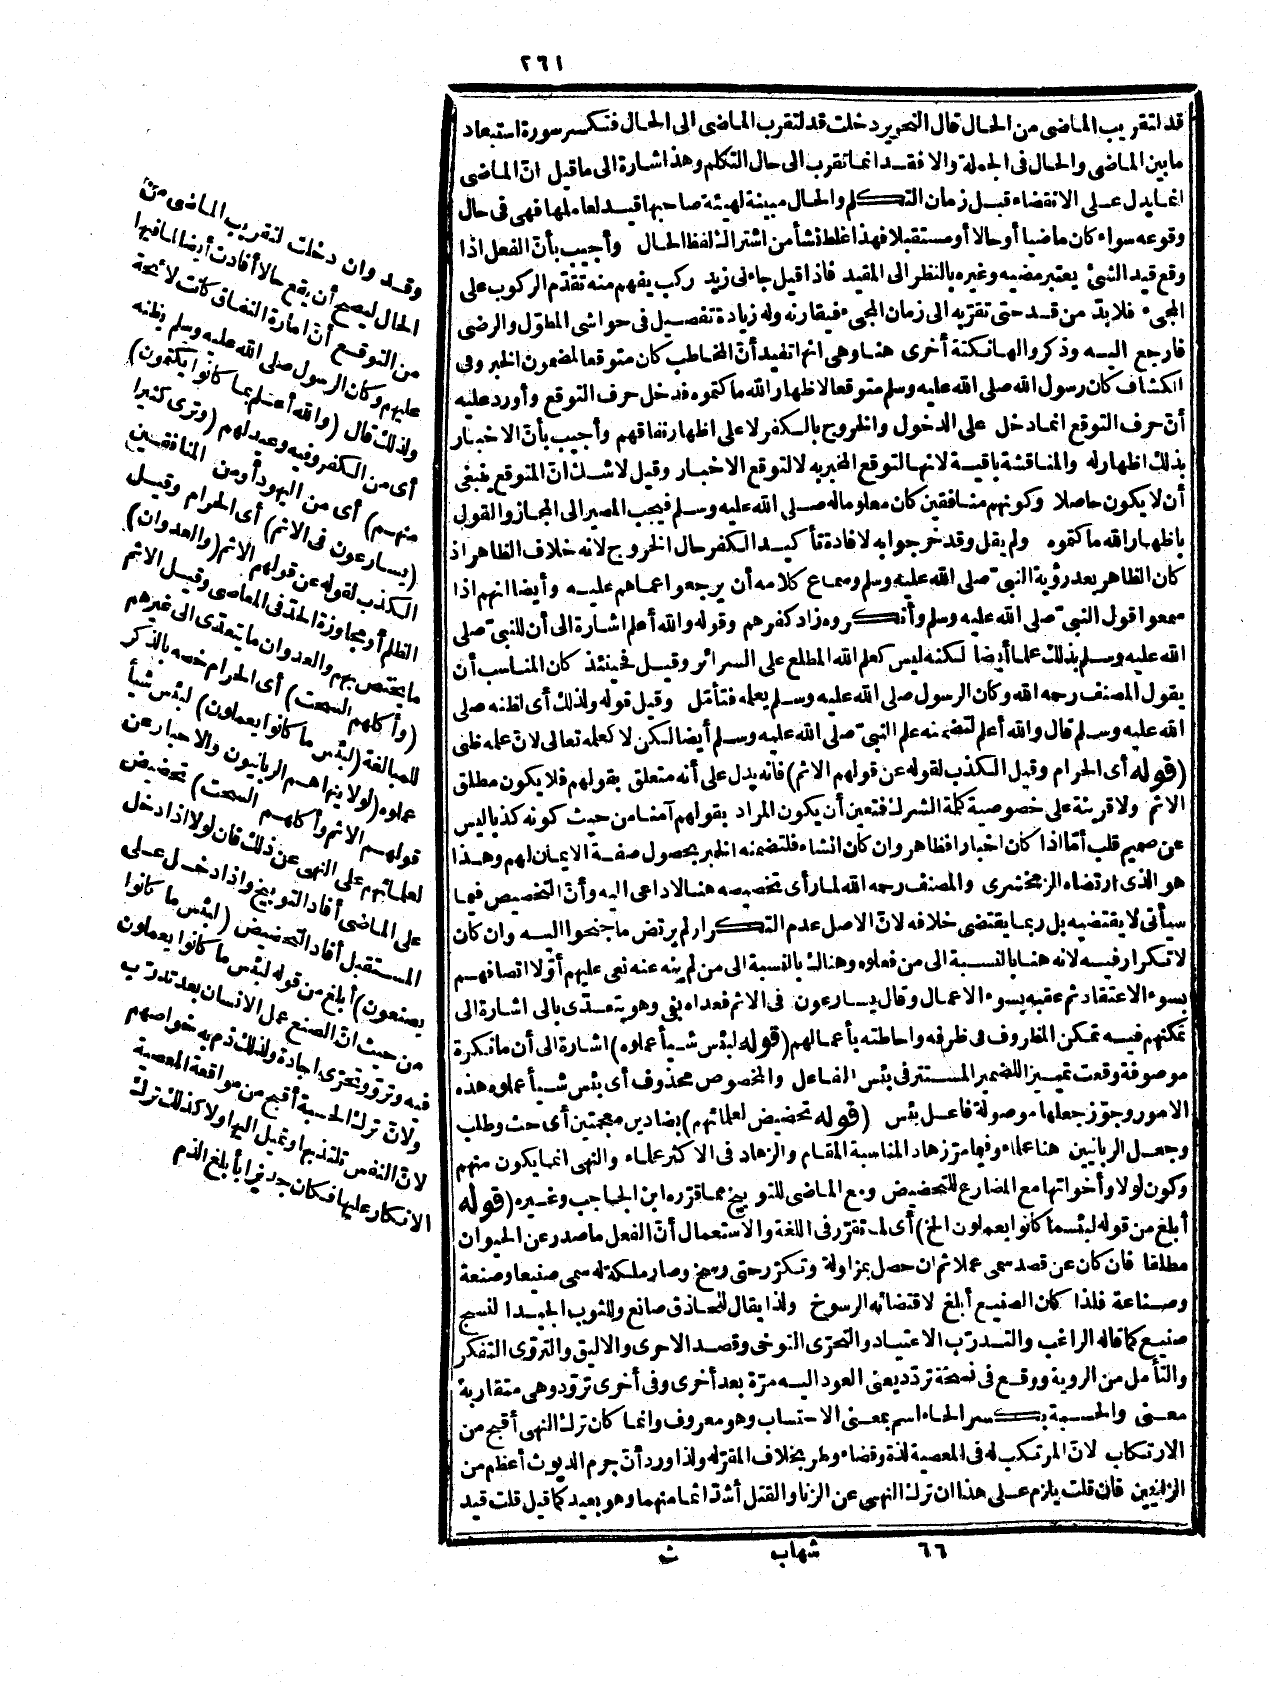 ٢٦١
قد لتقريب الماضى من الحال قال النحرير دخلت قد لتقرب الماضى الى الحال فتكسر سورة استبعاد
ما بين الماضى والحال فى الجملة والا فقد انما تقرب الى حال التكلم وهذا اشارة الى ما قيل انّ الماضى
انما يدل على الانقضاء قبل زمان التكلم والحال مبينة لهيئة صاحبها قيد لعاملها فهى فى حال
وقوعه سواء كان ماضيا أو حالا أو مستقبلا فهذا غلط نشأ من اشتراك لفظ الحال وأجيب بأنّ الفعل اذا
وقع قيد الشئ يعتبر مضيه وغيره بالنظر الى المقيد فاذا قيل جاءنى زيد ركب يفهم منه تقدّم الركوب على
المجىء فلا بدّ من قد حتى تقرّبه الى زمان المجىء فيقارنه وله زيادة تفصيل فى حواشى المطوّل والرضى
فارجع اليه وذكروا لها نكتة أخرى هنا وهى انها تفيد أنّ المخاطب كان متوقعا لمضمون الخبر وفى
الكشاف كان رسول الله صلى الله عليه وسلم متوقعا لاظهار الله ما كتموه فدخل حرف التوقع وأورد عليه
أنّ حرف التوقع انما دخل على الدخول والخروج بالكفر لا على اظهار نفاقهم وأجيب بأنّ الاخبار
بذلك اظهار له والمناقشة باقية لانها لتوقع المخبر به لا لتوقع الاخبار وقيل لا شك انّ المتوقع ينبغى
أن لا يكون حاصلا وكونهم منافقين كان معلوما له صلى الله عليه وسلم فيجب المصير الى المجاز والقول
باظهار الله ما كتموه ولم يقل وقد خرجوا به لافادة تأكيد الكفر حال الخروج لانه خلاف الظاهر اذ
كان الظاهر بعد رؤية النبىّ صلى الله عليه وسلم وسماع كلامه أن يرجعوا عما هم عليه وأيضا انهم اذا
سمعوا قول النبىّ صلى الله عليه وسلم وأنكروه زاد كفرهم وقوله والله أعلم اشارة الى أن للنبىّ صلى
الله عليه وسلم بذلك علما أيضا لكنه ليس كعلم الله المطلع على السرائر وقيل فحينئذ كان المناسب أن
يقول المصنف رحمه الله وكان الرسول صلى الله عليه وسلم يعلمه فتأمّل وقيل قوله ولذلك أى لظنه صلى
الله عليه وسلم قال والله أعلم لتضمنه علم النبىّ صلى الله عليه وسلم أيضا لكن لا كعلمه تعالى لانّ علمه ظنى
(قوله أى الحرام وقيل الكذب لقوله عن قولهم الاثم) فانه يدل على أنه متعلق بقولهم فلا يكون مطلق
الاثم ولا قرينة على خصوصية كلمة الشرك فتعين أن يكون المراد بقولهم آمنا من حيث كونه كذبا ليس
عن صميم قلب أمّا اذا كان اخبارا فظاهر وان كان انشاء فلتضمنه الخبر بحصول صفة الايمان لهم وهذا
هو الذى ارتضاه الزمخشرى والمصنف رحمه الله لما رأى تخصيصه هنا لا داعى اليه وأنّ التخصيص فيما
سيأتى لا يقتضيه بل ربما يقتضى خلافه لانّ الاصل عدم التكرار لم يرتض ما جنحوا اليه وان كان
لا تكرار فيه لانه هنا بالنسبة الى من فعلوه وهناك بالنسبة الى من لم ينه عنه نعى عليهم أوّلا اتصافهم
بسوء الاعتقاد ثم عقبه بسوء الاعمال وقال يسارعون فى الاثم فعداه بفى وهو يتعدّى بالى اشارة الى
تمكنهم فيه تمكن المظروف فى ظرفه واحاطته بأعمالهم (قوله لبئس شيأ عملوه) اشارة الى أن ما نكرة
موصوفة وقعت تمييزا للضمير المستتر فى بئس الفاعل والمخصوص محذوف أى بئس شيأ عملوه هذه
الامور وجوّز جعلها موصولة فاعل بئس (قوله تحضيض لعلمائهم) بضادين معجمتين أى حث وطلب
وجعل الربانيين هنا علماء وفيما مرّ زهاد المناسبة المقام والزهاد فى الاكثر علماء والنهى انما يكون منهم
وكون لولا وأخواتها مع المضارع للتحضيض ومع الماضى للتوبيخ مما قرّره ابن الحاجب وغيره (قوله
أبلغ من قوله لبئسما كانوا يعملون الخ) أى لما تقرّر فى اللغة والاستعمال أنّ الفعل ما صدر عن الحيوان
مطلقا فان كان عن قصد سمى عملا ثم ان حصل بمزاولة وتكرّر حتى رسخ وصار ملكة له سمى صنيعا وصنعة
وصناعة فلذا كان الصنيع أبلغ لاقتضائه الرسوخ ولذا يقال للحاذق صانع وللثوب الجيد النسج
صنيع كما قاله الراغب والتدرّب الاعتياد والتحرّى التوخى وقصد الاحرى والاليق والتروّى التفكر
والتأمل من الروية ووقع فى نسخة تردّد يعنى العود اليه مرّة بعد أخرى وفى أخرى تزوّد وهى متقاربة
معنى والحسبة بكسر الحاء اسم بمعنى الاحتساب وهو معروف وانما كان ترك النهى أقبح من
الارتكاب لانّ المرتكب له فى المعصية لذة وقضاء وطر بخلاف المقرّ له ولذا ورد أنّ جرم الديوث أعظم من
الزانيين فان قلت يلزم على هذا ان ترك النهى عن الزنا والقتل أشدّ اثما منهما وهو بعيد كما قيل قلت قيد
٦٦ شهاب ث
وقد وان دخلت لتقريب الماضى من
الحال ليصح أن يقع حالا أفادت أيضا لما فيها
من التوقع أنّ امارة النفاق كانت لائحة
عليهم وكان الرسول صلى الله عليه وسلم يظنه
ولذلك قال (والله أعلم بما كانوا يكتمون)
أى من الكفر وفيه وعيد لهم (وترى كثيرا
منهم) أى من اليهود أو من المنافقين
(يسارعون فى الاثم) أى الحرام وقيل
الكذب لقوله عن قولهم الاثم (والعدوان)
الظلم أو مجاوزة الحدّ فى المعاصى وقيل الاثم
ما يختص بهم والعدوان ما يتعدى الى غيرهم
(وأكلهم السحت) أى الحرام خصه بالذكر
للمبالغة (لبئس ما كانوا يعملون) لبئس شيأ
عملوه (لولا ينهاهم الربانيون والاحبار عن
قولهم الاثم وأكلهم السحت) تحضيض
لعلمائهم على النهى عن ذلك فان لولا اذا دخل
على الماضى أفاد التوبيخ واذا دخل على
المستقبل أفاد التحضيض (لبئس ما كانوا
يصنعون) أبلغ من قوله لبئس ما كانوا يعملون
من حيث انّ الصنع عمل الانسان بعد تدرّب
فيه وتروّ وتحرّى اجادة ولذلك ذم به خواصهم
ولانّ ترك الحسبة أقبح من مواقعة المعصية
لانّ النفس تلتذ بها وتميل اليها ولا كذلك ترك
الانكار عليها فكان جديرا بأبلغ الذم